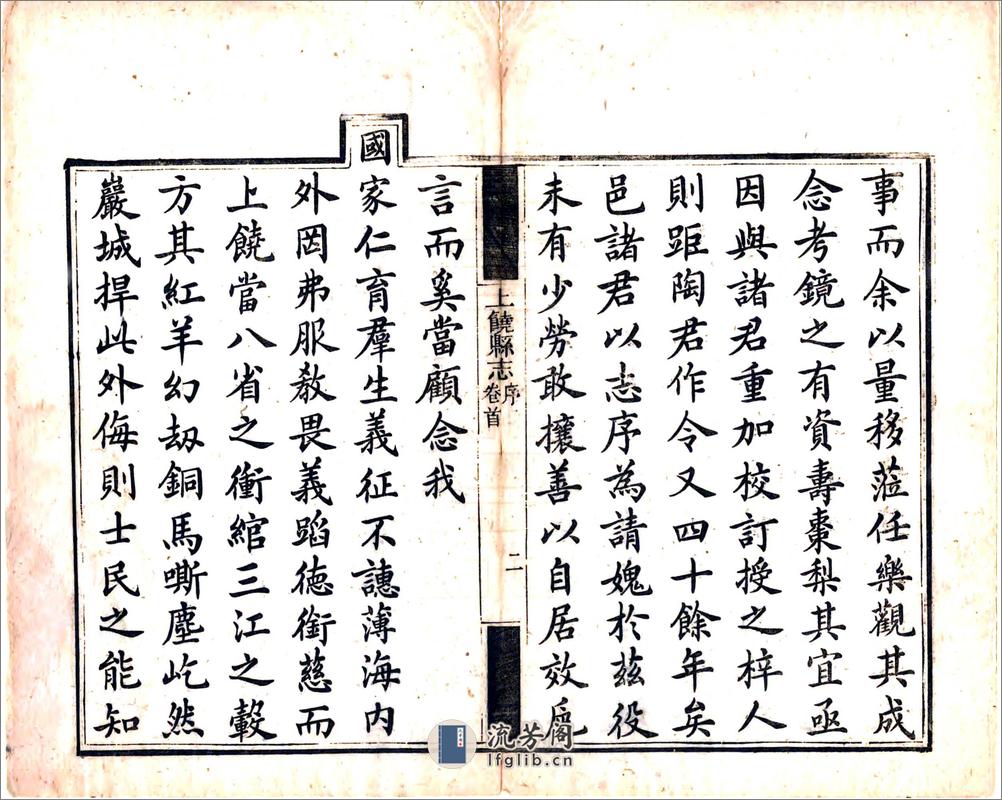 事而余以量移蒞任樂觀其成
念考鏡之有資壽棗梨其宜亟
因與諸君重加校訂授之梓人
則距陶君作令又四十餘年矣
邑諸君以志序為請媿於茲役
未有少勞敢攘善以自居效
上饒縣志 序 卷首 二
言而奚當顧念我
國
家仁育羣生義征不譓薄海內
外罔弗服教畏義蹈德銜慈而
上饒當八省之衝綰三江之轂
方其紅羊幻劫銅馬嘶塵屹然
巖城捍此外侮則士民之能知
流芳阁
lfglib.cn